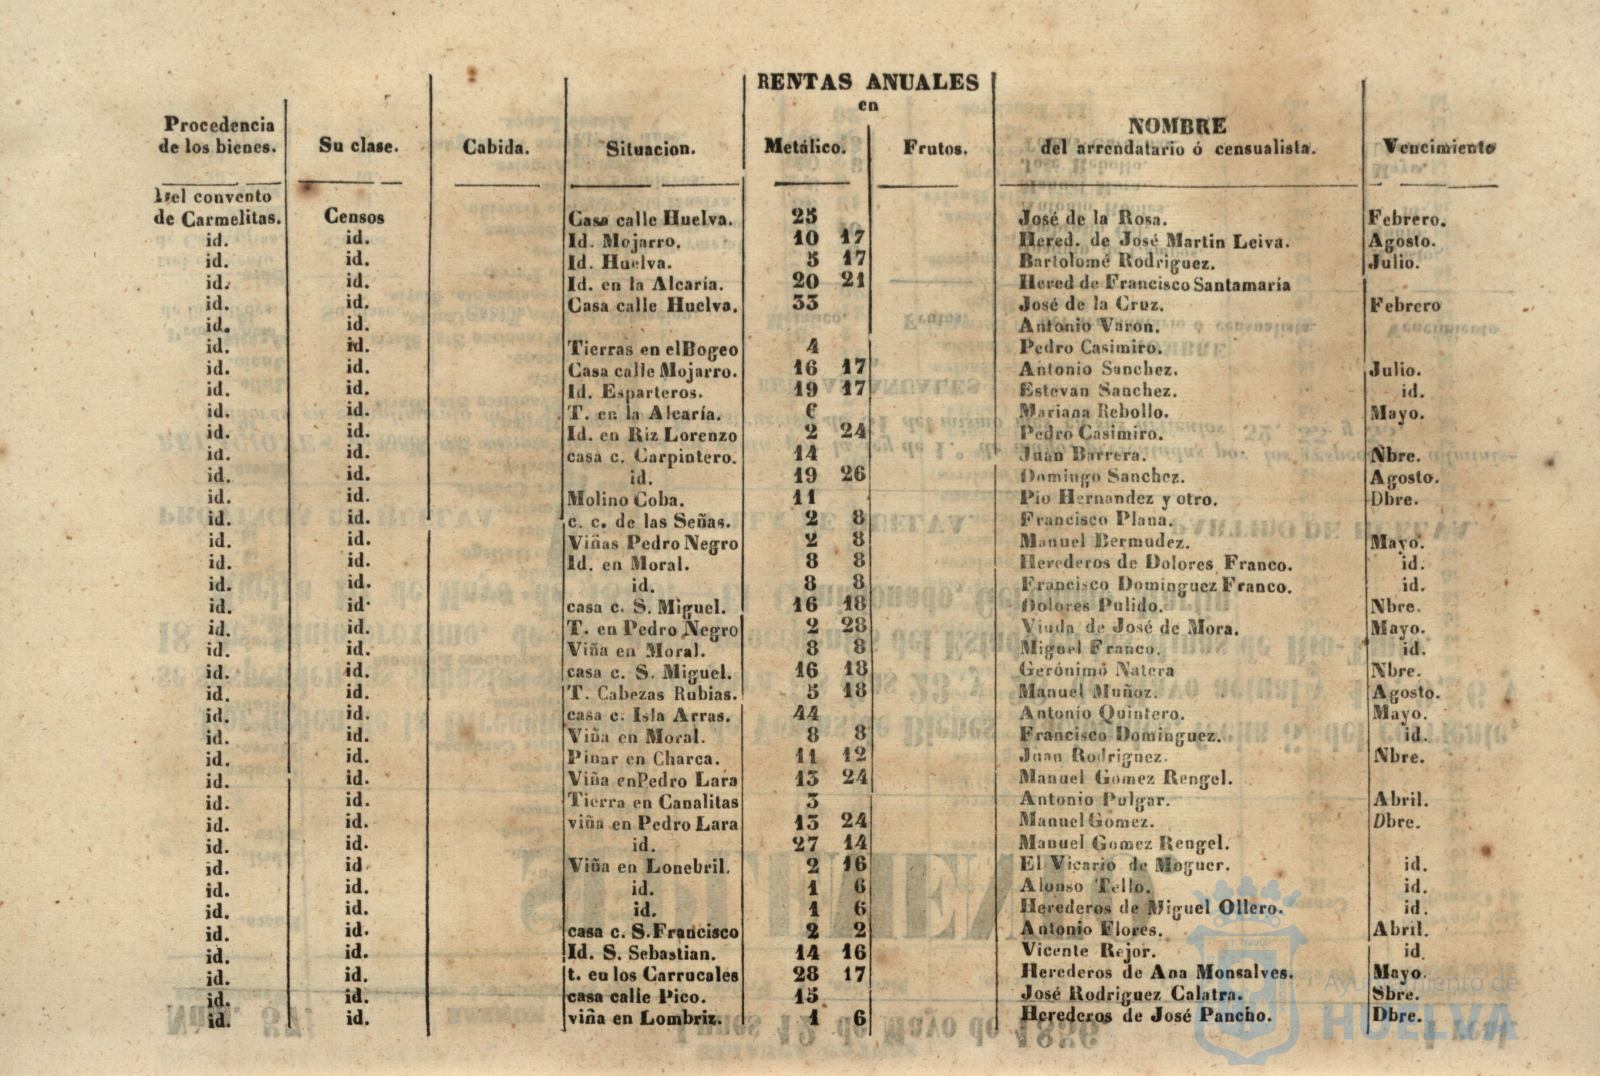 RENTAS ANUALES
en
Procedencia de los bienes. Su clase. Cabida. Situacion. Metálico. Frutos. NOMBRE del arrendatario ó censualista. Vencimiento
Del convento
de Carmelitas. Censos Casa calle Huelva. 25 José de la Rosa. Febrero.
id. id. Id. Mojarro. 10 17 Hered. de José Martin Leiva. Agosto.
id. id. Id. Huelva. 5 17 Bartolomé Rodriguez. Julio.
id. id. Id. en la Alcaría. 20 21 Hered de Francisco Santamaria
id. id. Casa calle Huelva. 33 José de la Cruz. Febrero
id. id. Antonio Varon.
id. id. Tierras en el Bogeo 4 Pedro Casimiro.
id. id. Casa calle Mojarro. 16 17 Antonio Sanchez. Julio.
id. id. Id. Esparteros. 19 17 Estevan Sanchez. id.
id. id. T. en la Alcaría. 6 Mariana Rebollo. Mayo.
id. id. Id. en Riz Lorenzo 2 24 Pedro Casimiro.
id. id. casa c. Carpintero. 14 Juan Barrera. Nbre.
id. id. id. 19 26 Domingo Sanchez. Agosto.
id. id. Molino Coba. 11 Pio Hernandez y otro. Dbre.
id. id. c. c. de las Señas. 2 8 Francisco Plana.
id. id. Viñas Pedro Negro 2 8 Manuel Bermudez. Mayo.
id. id. Id. en Moral. 8 8 Herederos de Dolores Franco. id.
id. id. id. 8 8 Francisco Dominguez Franco. id.
id. id. casa c. S. Miguel. 16 18 Dolores Pulido. Nbre.
id. id. T. en Pedro Negro 2 28 Viuda de José de Mora. Mayo.
id. id. Viña en Moral. 8 8 Miguel Franco. id.
id. id. casa c. S. Miguel. 16 18 Gerónimo Natera Nbre.
id. id. T. Cabezas Rubias. 5 18 Manuel Muñoz. Agosto.
id. id. casa c. Isla Arras. 44 Antonio Quintero. Mayo.
id. id. Viña en Moral. 8 8 Francisco Dominguez. id.
id. id. Pinar en Charca. 11 12 Juan Rodriguez. Nbre.
id. id. Viña en Pedro Lara 13 24 Manuel Gomez Rengel.
id. id. Tierra en Canalitas 3 Antonio Pulgar. Abril.
id. id. viña en Pedro Lara 13 24 Manuel Gomez. Dbre.
id. id. id. 27 14 Manuel Gomez Rengel.
id. id Viña en Lonebril. 2 16 El Vicario de Moguer. id.
id. id. id. 1 6 Alonso Tello. id.
id. id. id. 1 6 Herederos de Miguel Ollero. id.
id. id. casa c. S. Francisco 2 2 Antonio Flores. Abril.
id. id. Id. S. Sebastian. 14 16 Vicente Rejor. id
id. id. t. en los Carrucales 28 17 Herederos de Ana Monsalves. Mayo.
id. id. casa calle Pico. 15 José Rodriguez Calatra. Sbre.
id. id. viña en Lombriz. 1 6 Herederos de José Pancho. Dbre.
Ayuntamiento de
HUELVA